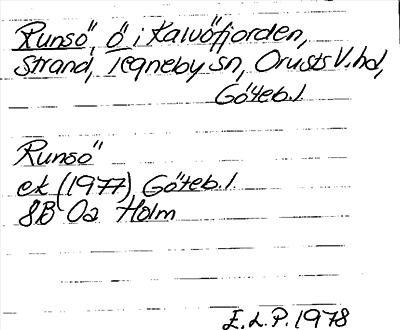 Runsö, ö i Kalvöfjorden,
Strand, Tegneby sn, Orusts V. hd,
Göteb. l
Runsö
ek (1977) Göteb. l.
8B 0a Holm
E. L. P. 1978